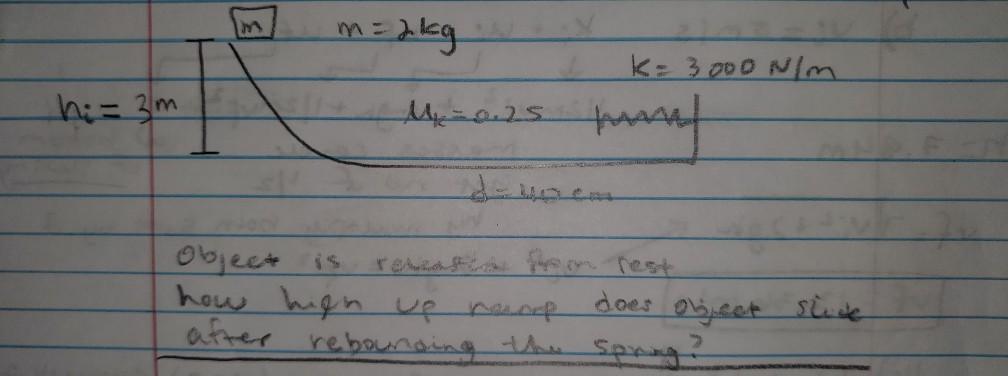 m m = 2kg
K = 3000 N/m
hi = 3m
μk = 0.25
d = 40 cm
Object is released from rest
how high up ramp does object slide
after rebounding the spring?